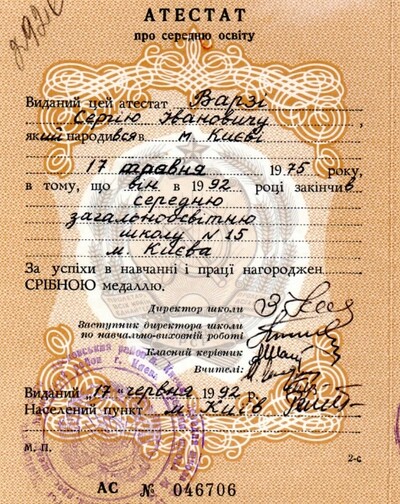 292
АТЕСТАТ
про середню освіту
Виданий цей атестат Варзі
Сергію Івановичу
який народився в м. Києві
17 травня 1975 року,
в тому, що він в 1992 році закінчив
середню
загальноосвітню
школу N 15
м. Києва
За успіхи в навчанні і праці нагороджен
СРІБНОЮ медаллю.
Директор школи
Заступник директора школи
по навчально-виховній роботі
Класний керівник
Вчителі:
Виданий „17" червня 1992 р.
Населений пункт м. Київ
М. П.
2-с
АС № 046706